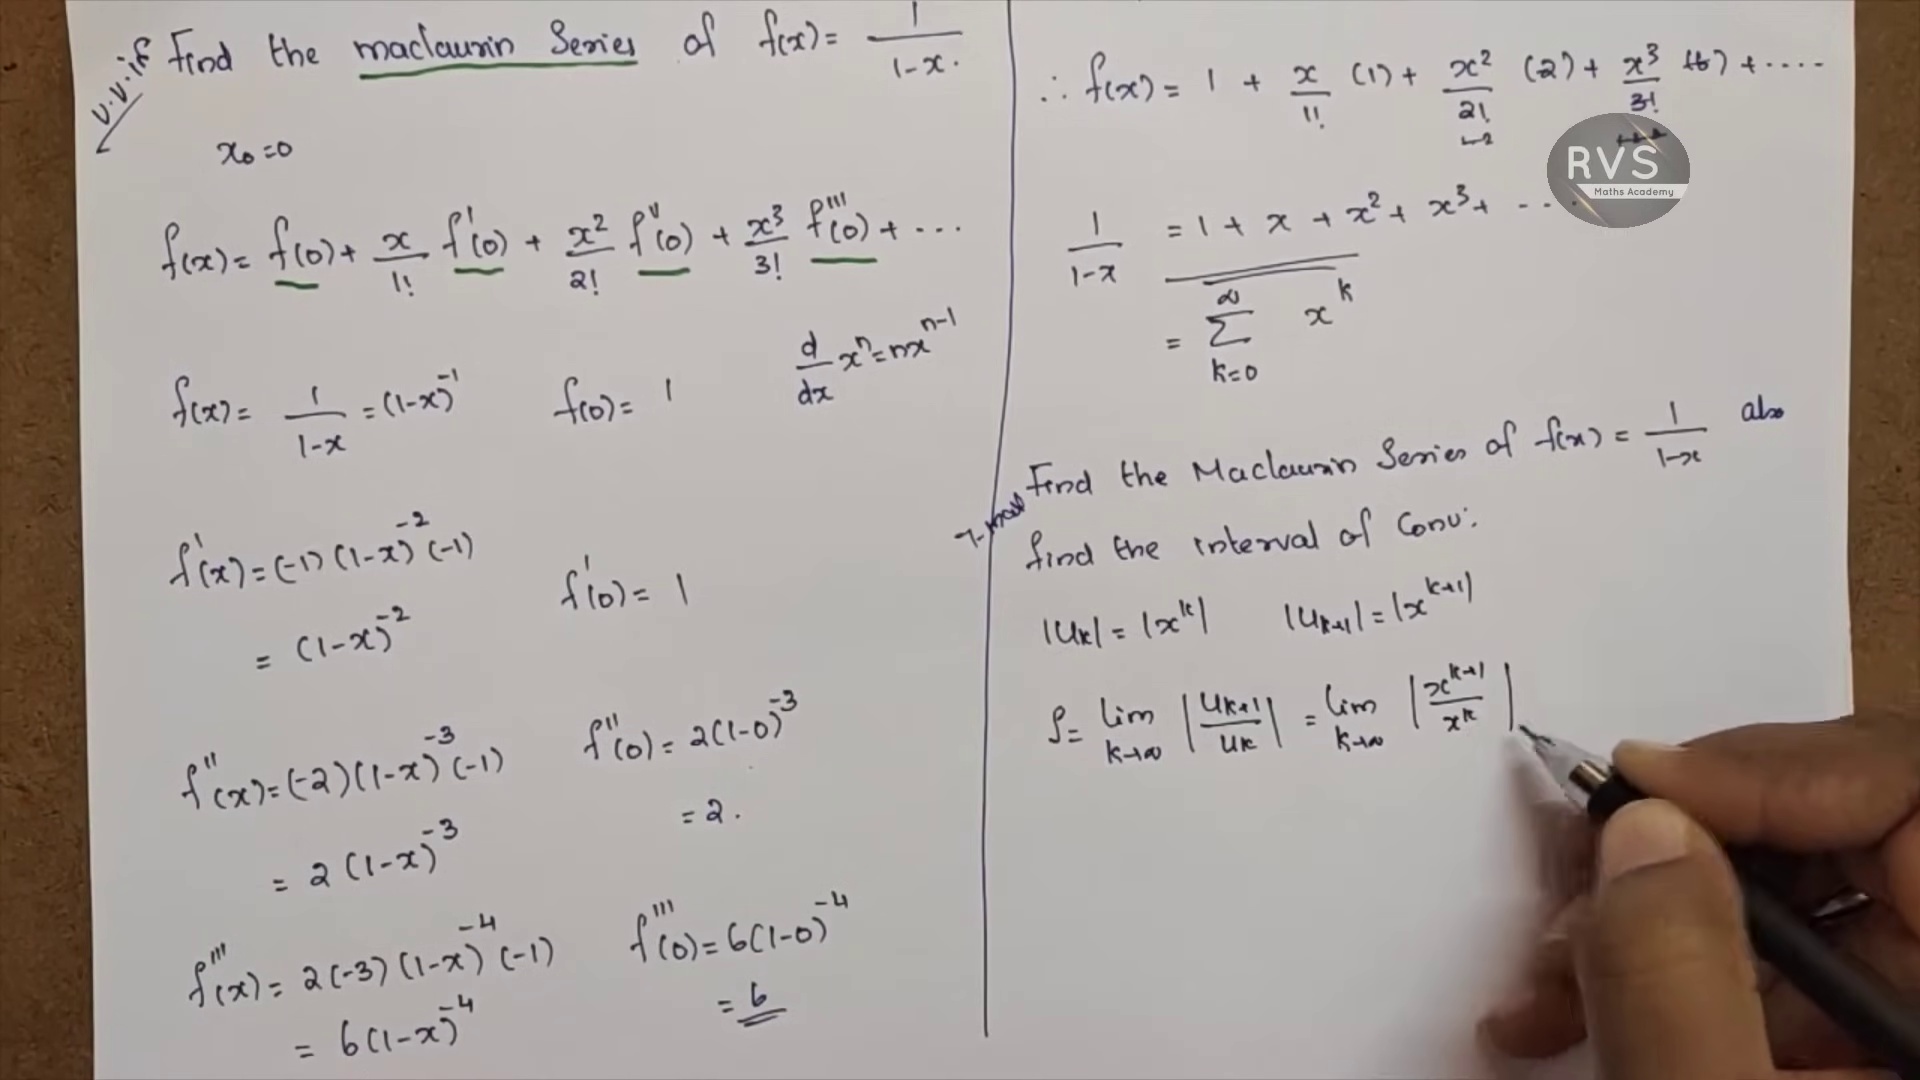 v.v.if Find the maclaurin Series of f(x) = 1/1-x.
x₀=0
f(x) = f(0) + x/1! f'(0) + x²/2! f''(0) + x³/3! f'''(0) + ...
f(x) = 1/1-x = (1-x)⁻¹ f(0) = 1 d/dx xⁿ = nxⁿ⁻¹
f'(x) = (-1)(1-x)⁻²(-1) f'(0) = 1
= (1-x)⁻²
f''(x) = (-2)(1-x)⁻³(-1) f''(0) = 2(1-0)⁻³
= 2(1-x)⁻³ = 2.
f'''(x) = 2(-3)(1-x)⁻⁴(-1) f'''(0) = 6(1-0)⁻⁴
= 6(1-x)⁻⁴ = 6
∴ f(x) = 1 + x/1! (1) + x²/2! (2) + x³/3! (6) + ....
RVS
Maths Academy
1/1-x = 1 + x + x² + x³ + ...
= ∑ k=0 ∞ xᵏ
Find the Maclaurin Series of f(x) = 1/1-x also
find the interval of Conv:
|uₖ| = |xᵏ| |uₖ₊₁| = |xᵏ⁺¹|
ρ = lim k→∞ |uₖ₊₁/uₖ| = lim k→∞ |xᵏ⁺¹/xᵏ|